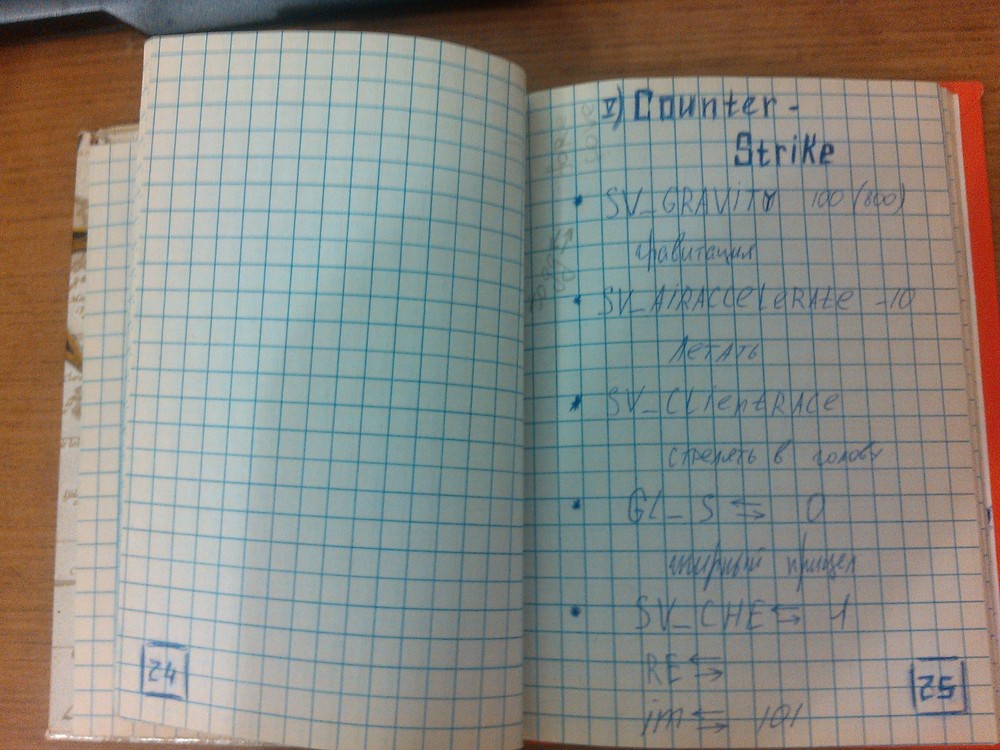 V) Counter-
Strike
• SV_GRAVITY 100 (800)
гравитация
• SV_AiRACCeLeRAte -10
летать
• SV_CLientRACe
стрелять в голову
• GL_S ⇆ 0
жирный прицел
• SV_CHE ⇆ 1
RE ⇆
im ⇆ 101
24
25